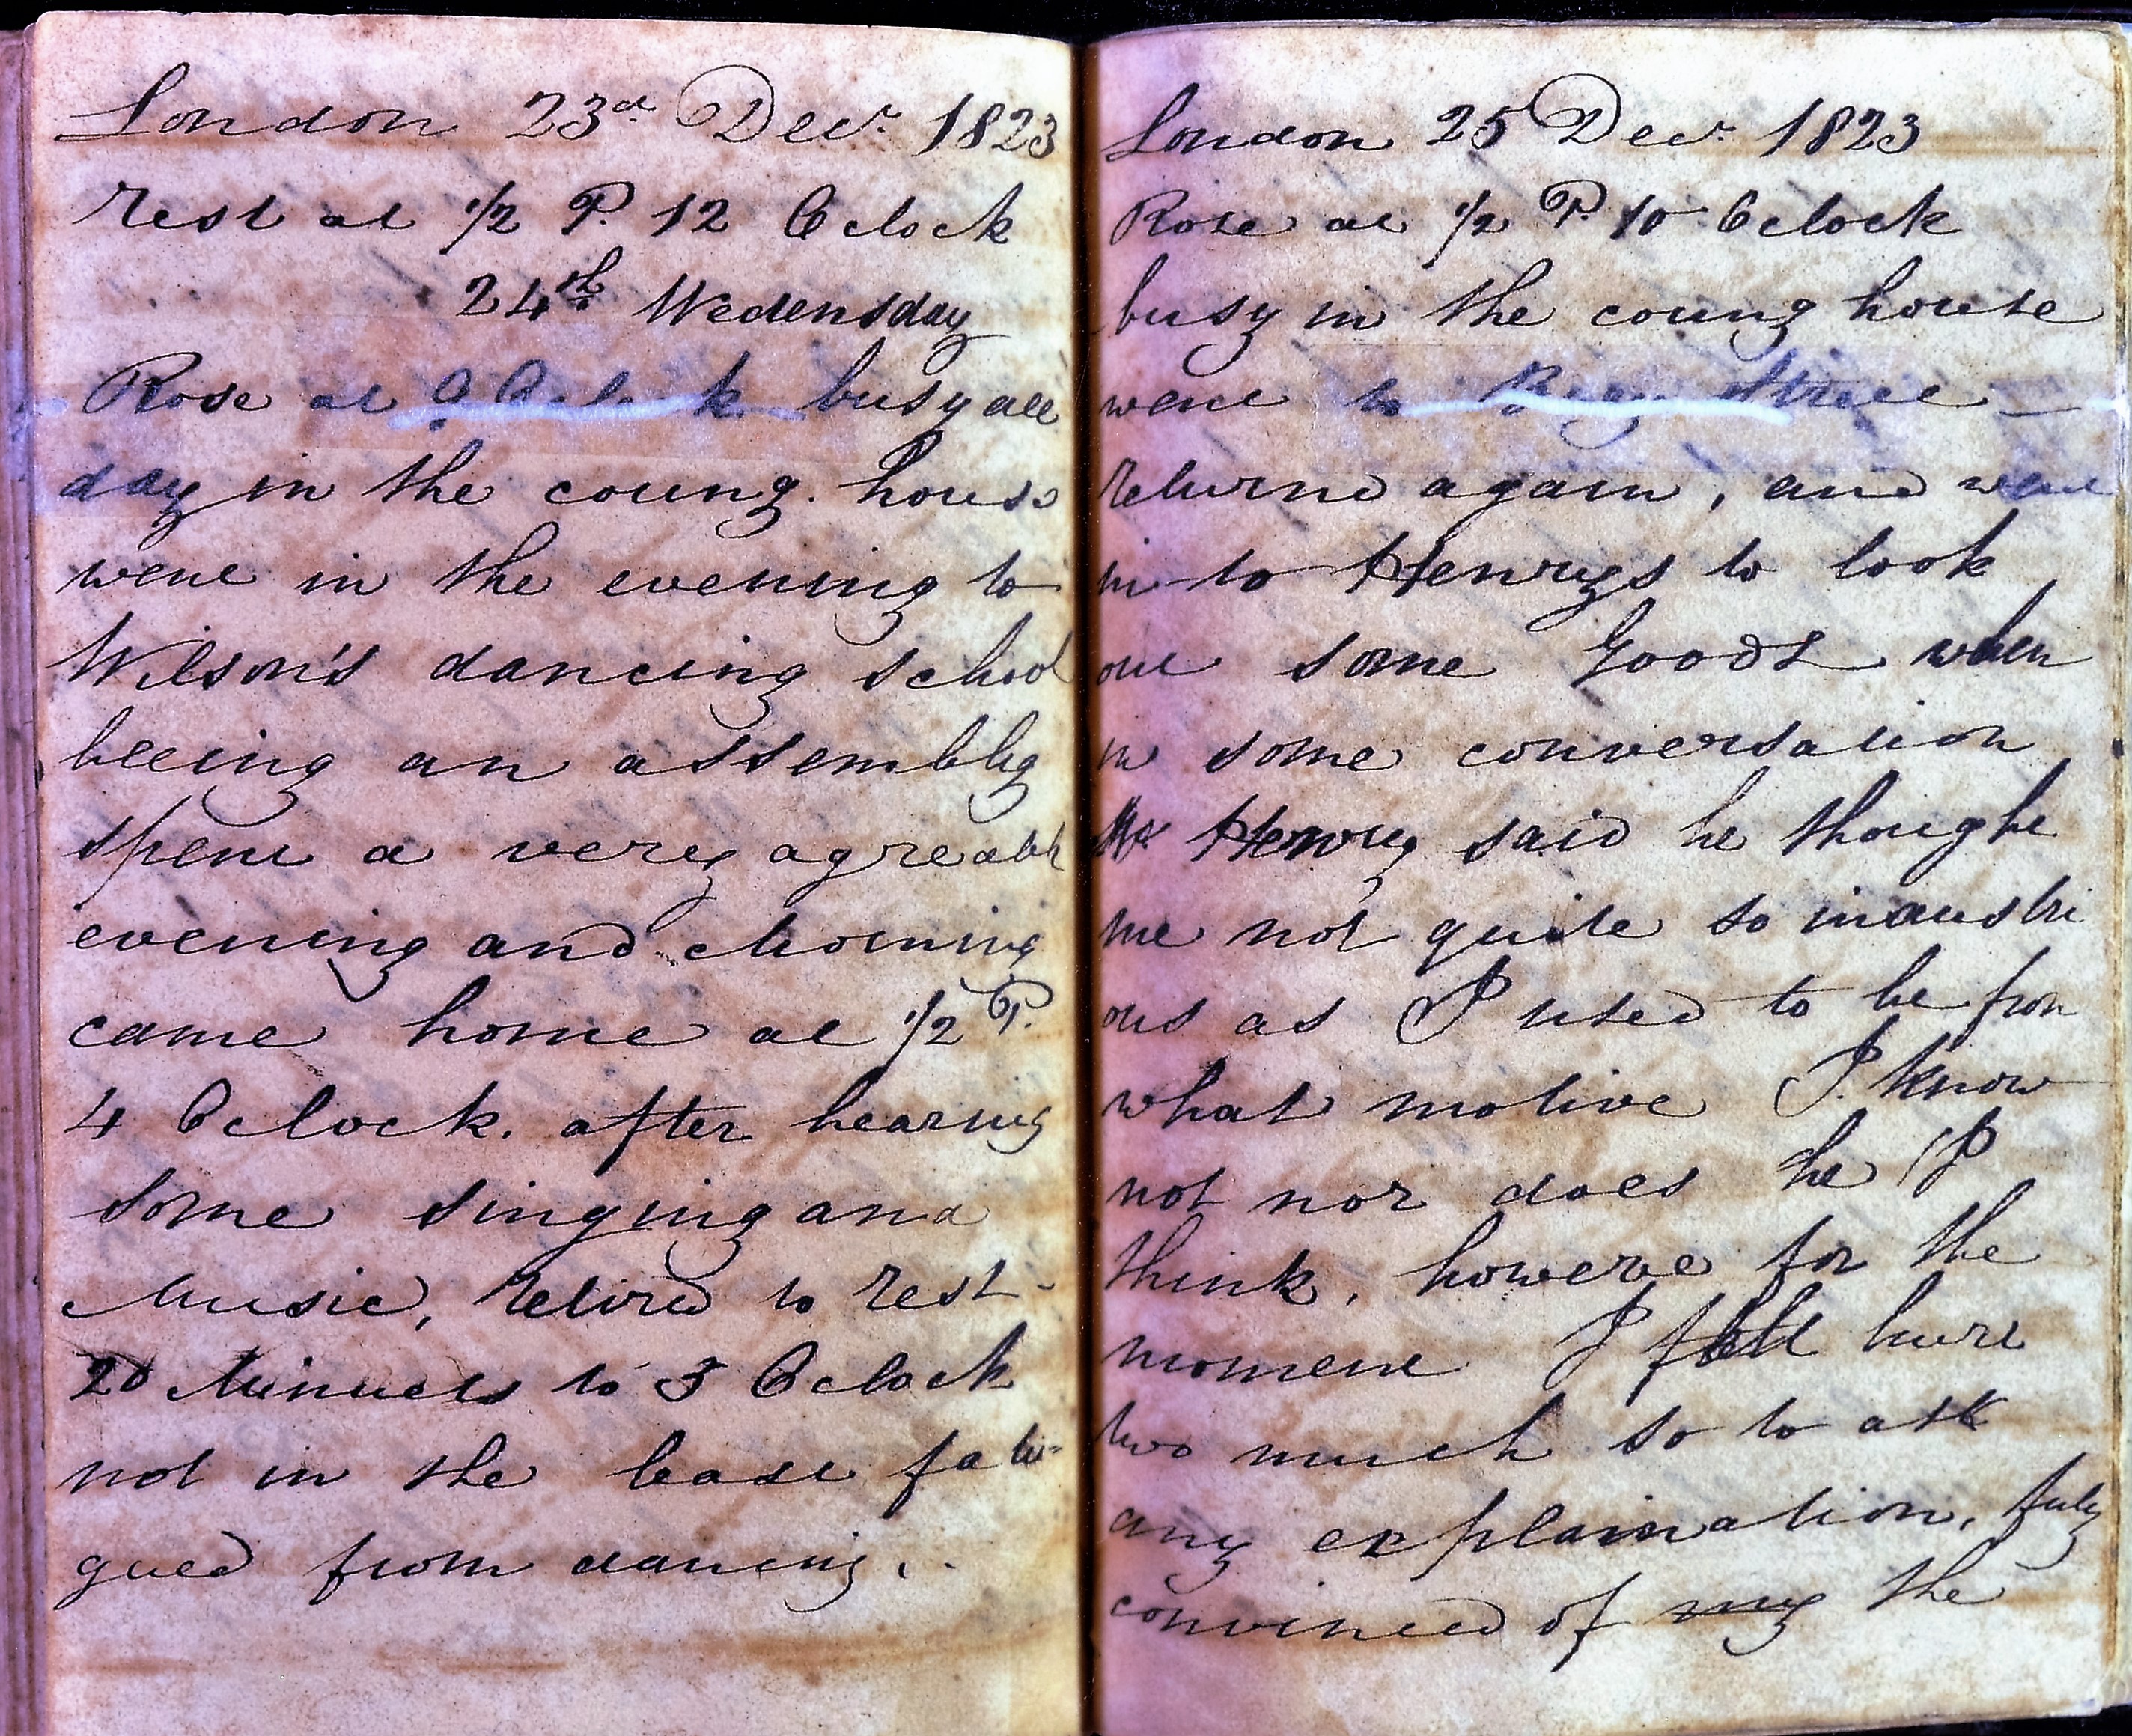 London 23d Decr. 1823
rest at 1/2 P. 12 Oclock
24th Wedensday
Rose at 9 Oclock busy all
day in the coung. house
went in the evening to
Wilson's dancing school
beeing an assembly
spent a very agreable
evening and Morning
came home at 1/2 P.
4 Oclock. after hearing
some singing and
Music, retired to rest-
20 Minuets to 5 Oclock
not in the least fati=
gued from dancing. ..
London 25 Decr. 1823
Rose at 1/2 P. 10 Oclock
busy in the coung house
went to Bury Street
returnd again, and went
in to Henrys to look
out some Goods when
in some conversation
Mr Henry said he thought
me not quite so industri
ous as I used to be from
what motive I. know
not nor does he I
think, howevre for the
moment I felt hurt
two much so to ask
any explaination, fuly
convinced of my the